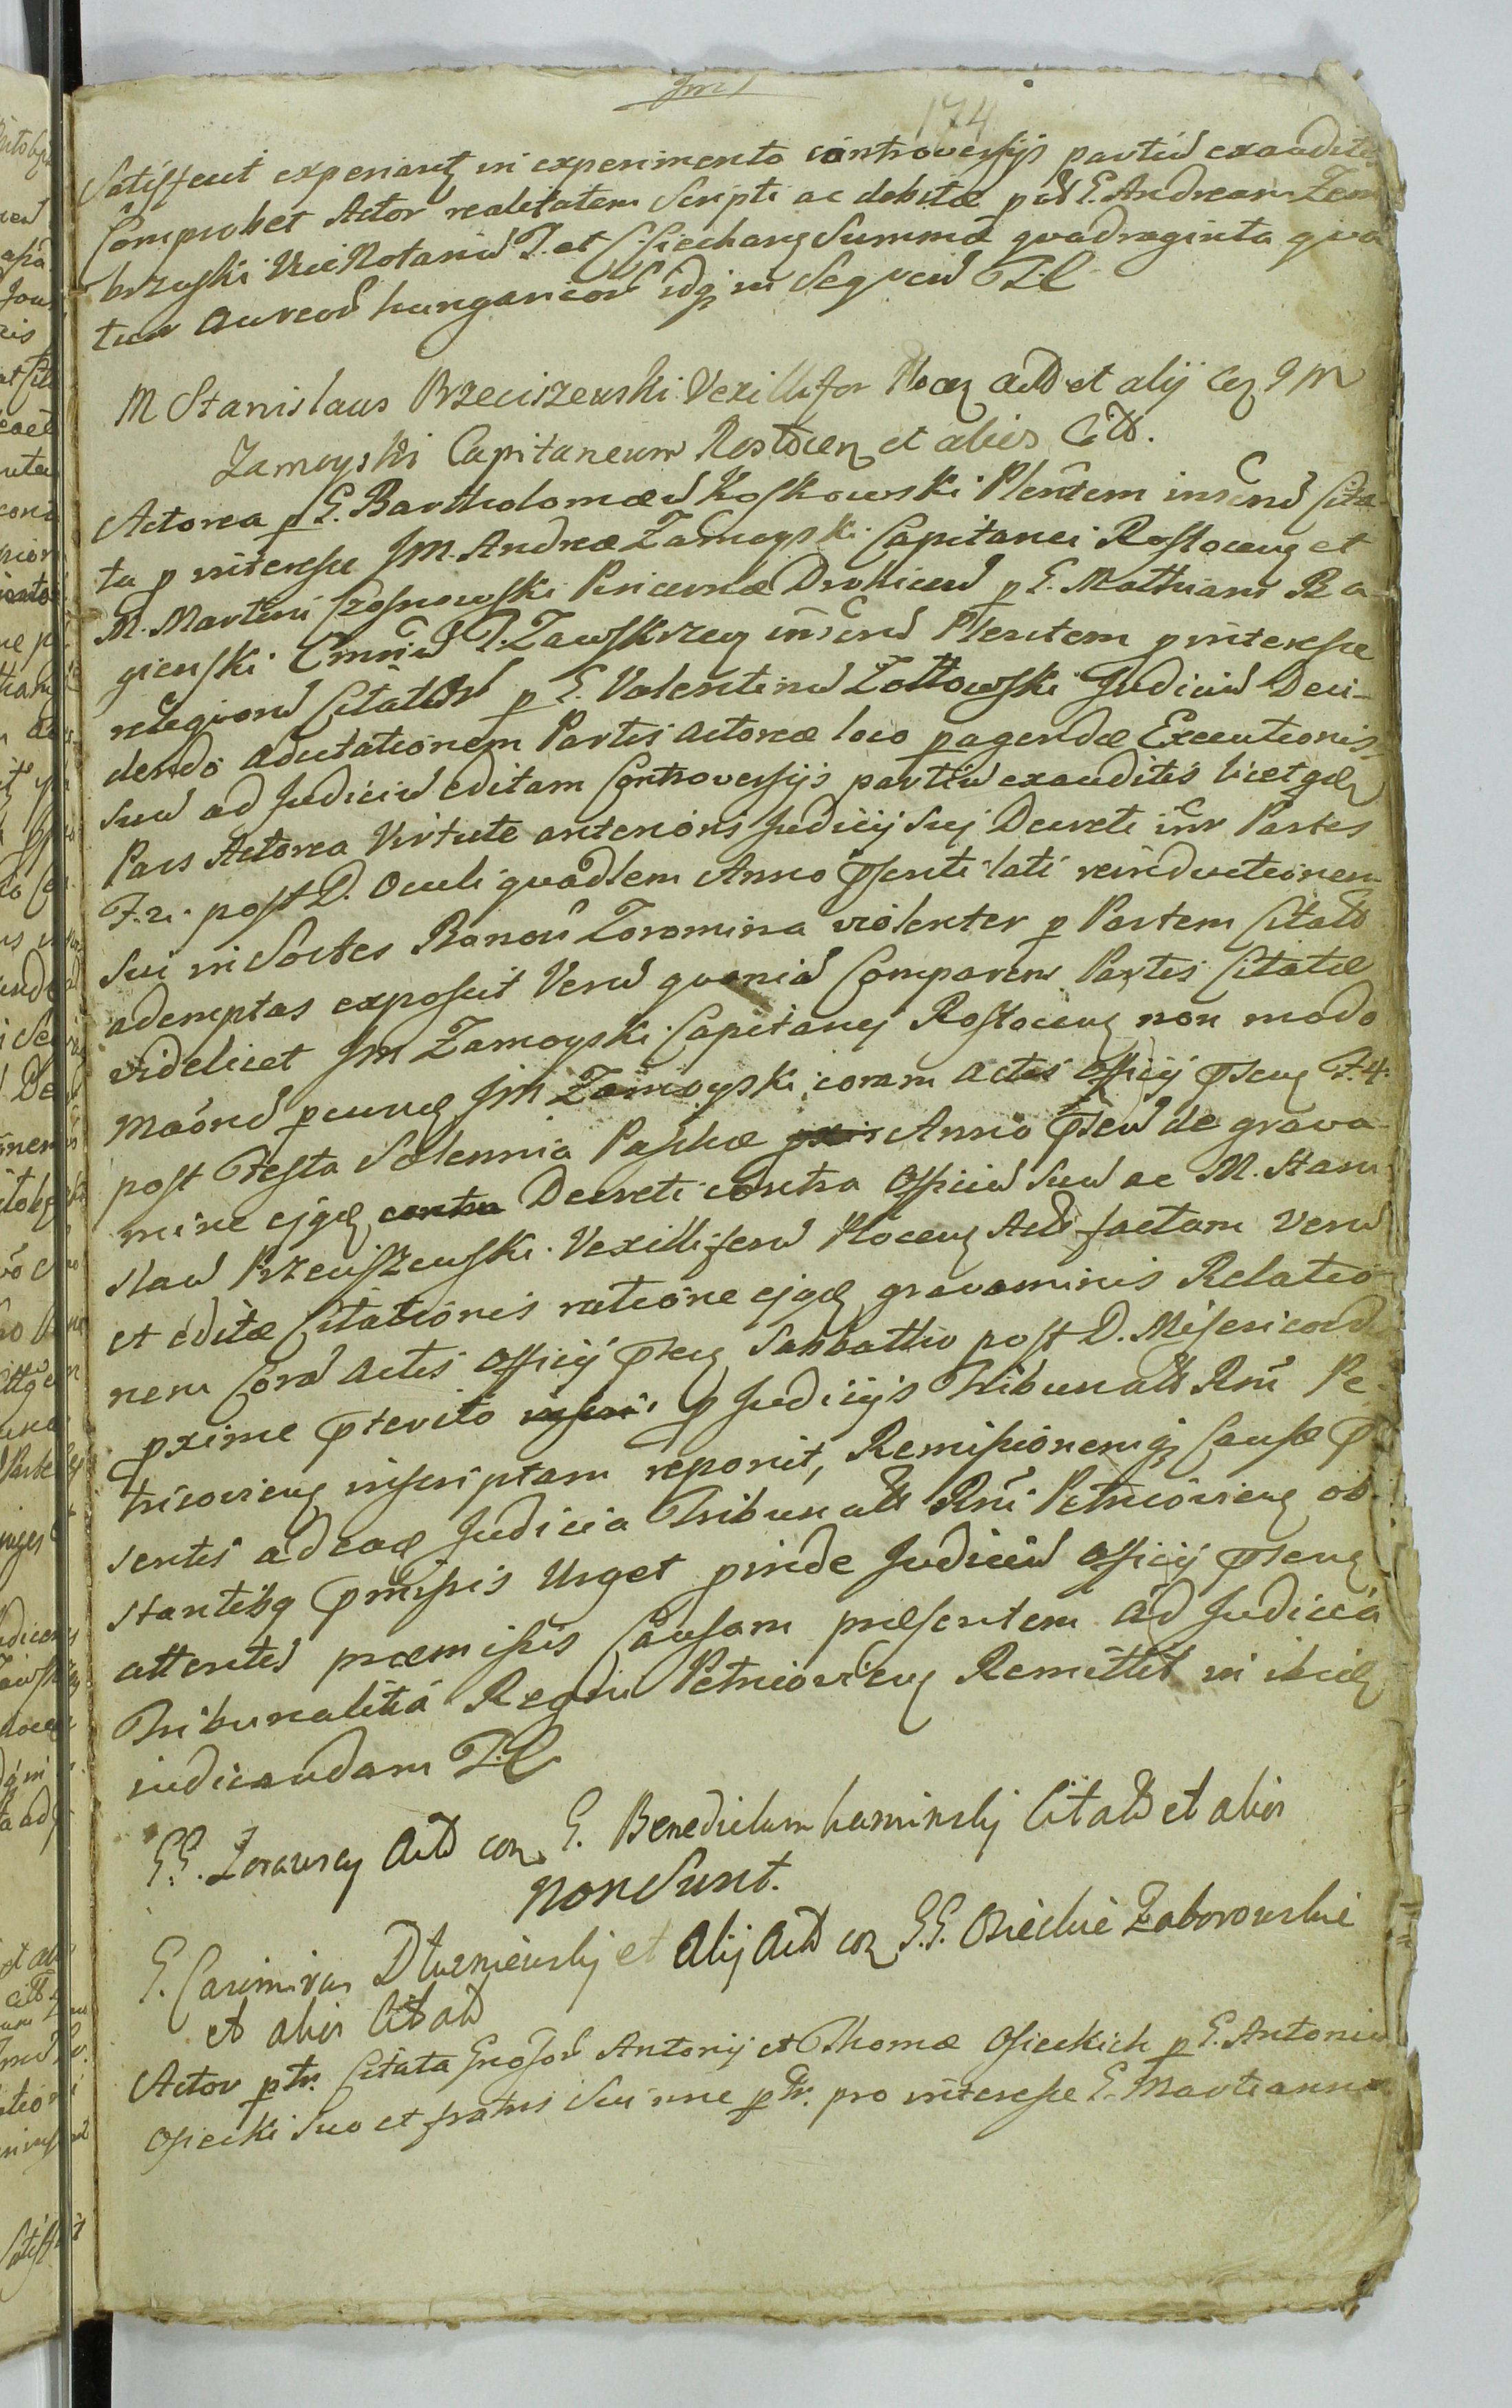 174
Satisfecit experiant in experimento controversijs partiu exauditis
Comprobet Actor realitatem Scripti ac debitæ p G. Andream Zem
brzuski Vice Notariu T. et Ciechang Summæ quadraginta qua
tuor Aureor hungaricor idq in Sequen T. L
M Stanislaus Brzeciszewski Vexillifer Plocen actd et alij con J M
Zamoyski Capitaneum Rostocen et alios Citd.
Actorea p G. Bartholomæu Koskowski Plentem inscnd Cita
ta p interesse JM. Andreæ Zamoyski Capitanei Rostocen et
M. Martini Czosnowski Pincernæ Drohicen p G. Mathiam Ra
gienski T. Zawskrzen inscnd Plentem p interesse
reliquord Citatord p G. Valentinu Zoltowski Judiciu Deci-
dendo Adcitationem Partis Actoreæ loco pagendæ Executionis
suu ad Judiciu editam Controversijs partiu exauditis licet
Pars Actorea Virtute anterioris Judicij Sui Decreti inr Partes
F. 2. post D. Oculi quadlem Anno psenti lati reinductionem
sui in Sortes Bonor Zoromina violenter p Partem Citatd
ademptas exposcit Veru quonia Comparens Partis Citatæ
videlicet JM Zamoyski Capitanej Rostocen non modo
JM Zamoyski coram actis Officij psen F. 4.
post Festa Solennia Paschæ Anno psen de grava
mine contra Decreti contra Officiu suu ac M. Stani
slau Brzeciszewski Vexilliferu Plocen Actd factam Veru
et editæ Citationis ratione gravaminis Relatio
nem Cora actis Officij psen Sabbatho post D. Misericordia
pxime pterito p Judicijs Tribunald Rni Pe
tricovien inscriptam reponit, Remissionemq Causæ p
sentis ad Judicia Tribunald Rni Petricovien ob
stantibq pmissis Urget pinde Judiciu Officij psen
attentis præmissis Causam præsentem ad Judicia
Tribunalitia Regni Petricovien Remittit in
iudicandam T. L
G.G. Actd con G. Benedictum kaminskij Citatd et alios
non Sunt.
G. Casimirus Dluzniewskij et Alij Actd con G.G. Osieckie Zaborowskie
et alios Citatd
Actor ptr. Citata Gnosor Antonij et Thomæ Osieckich p G. Antoniu
Osiecki suo et fratris sui nne ptr. pro interesse G. Martiannæ